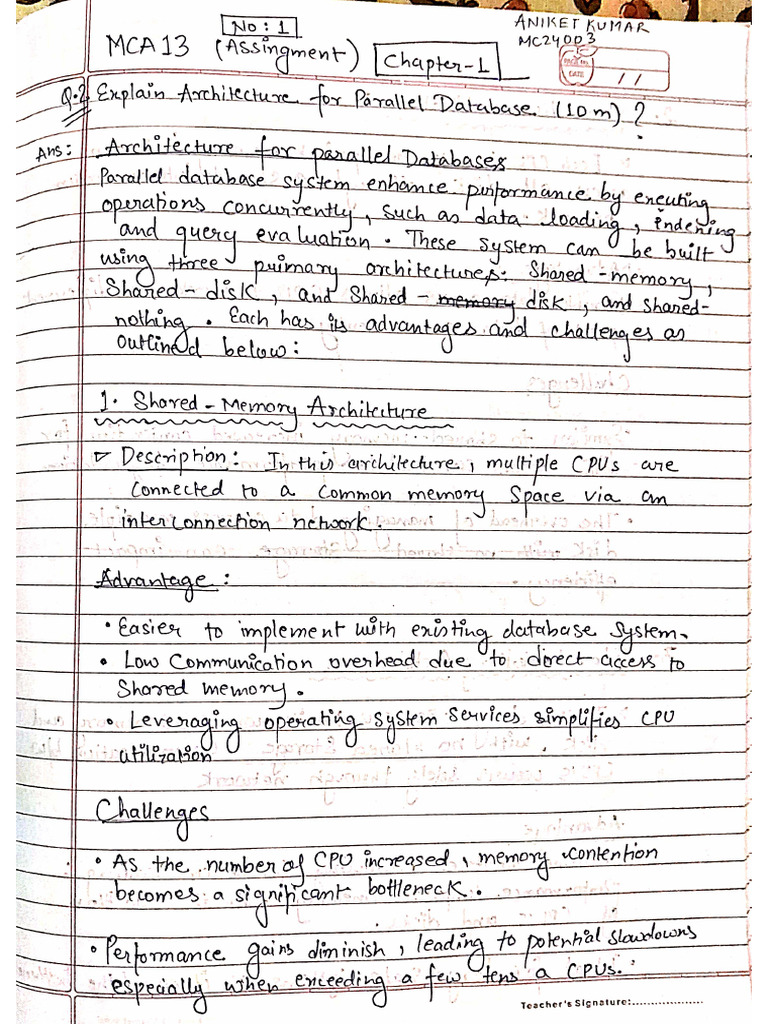 No: 1
ANIKET KUMAR
MCA13 (Assingment) Chapter-1
MC24003
PAGE NO.
DATE / /
Q.2 Explain Architecture for Parallel Database (10m) ?
Ans: Architecture for parallel Databases
Parallel database system enhance purformance by exeuting
operations concurrently, such as data loading, indexing
and query evaluation. These system can be built
using three primary architectures: Shared-memory,
Shared-disk, and Shared-memory disk, and shared-
nothing. Each has its advantages and challenges as
outlined below:
1. Shared-Memory Architecture
Description: In this architecture, multiple CPUs are
connected to a common memory space via an
interconnection network.
Advantage:
• Easier to implement with existing database system.
• Low Communication overhead due to direct access to
Shared memory.
• Leveraging operating system services simplifies CPU
utilization
Challenges
• As the number of CPU increased, memory contention
becomes a significant bottleneck.
• Performance gains diminish, leading to potential slowdowns
especially when exceeding a few tens a CPUs.
Teacher's Signature:....................